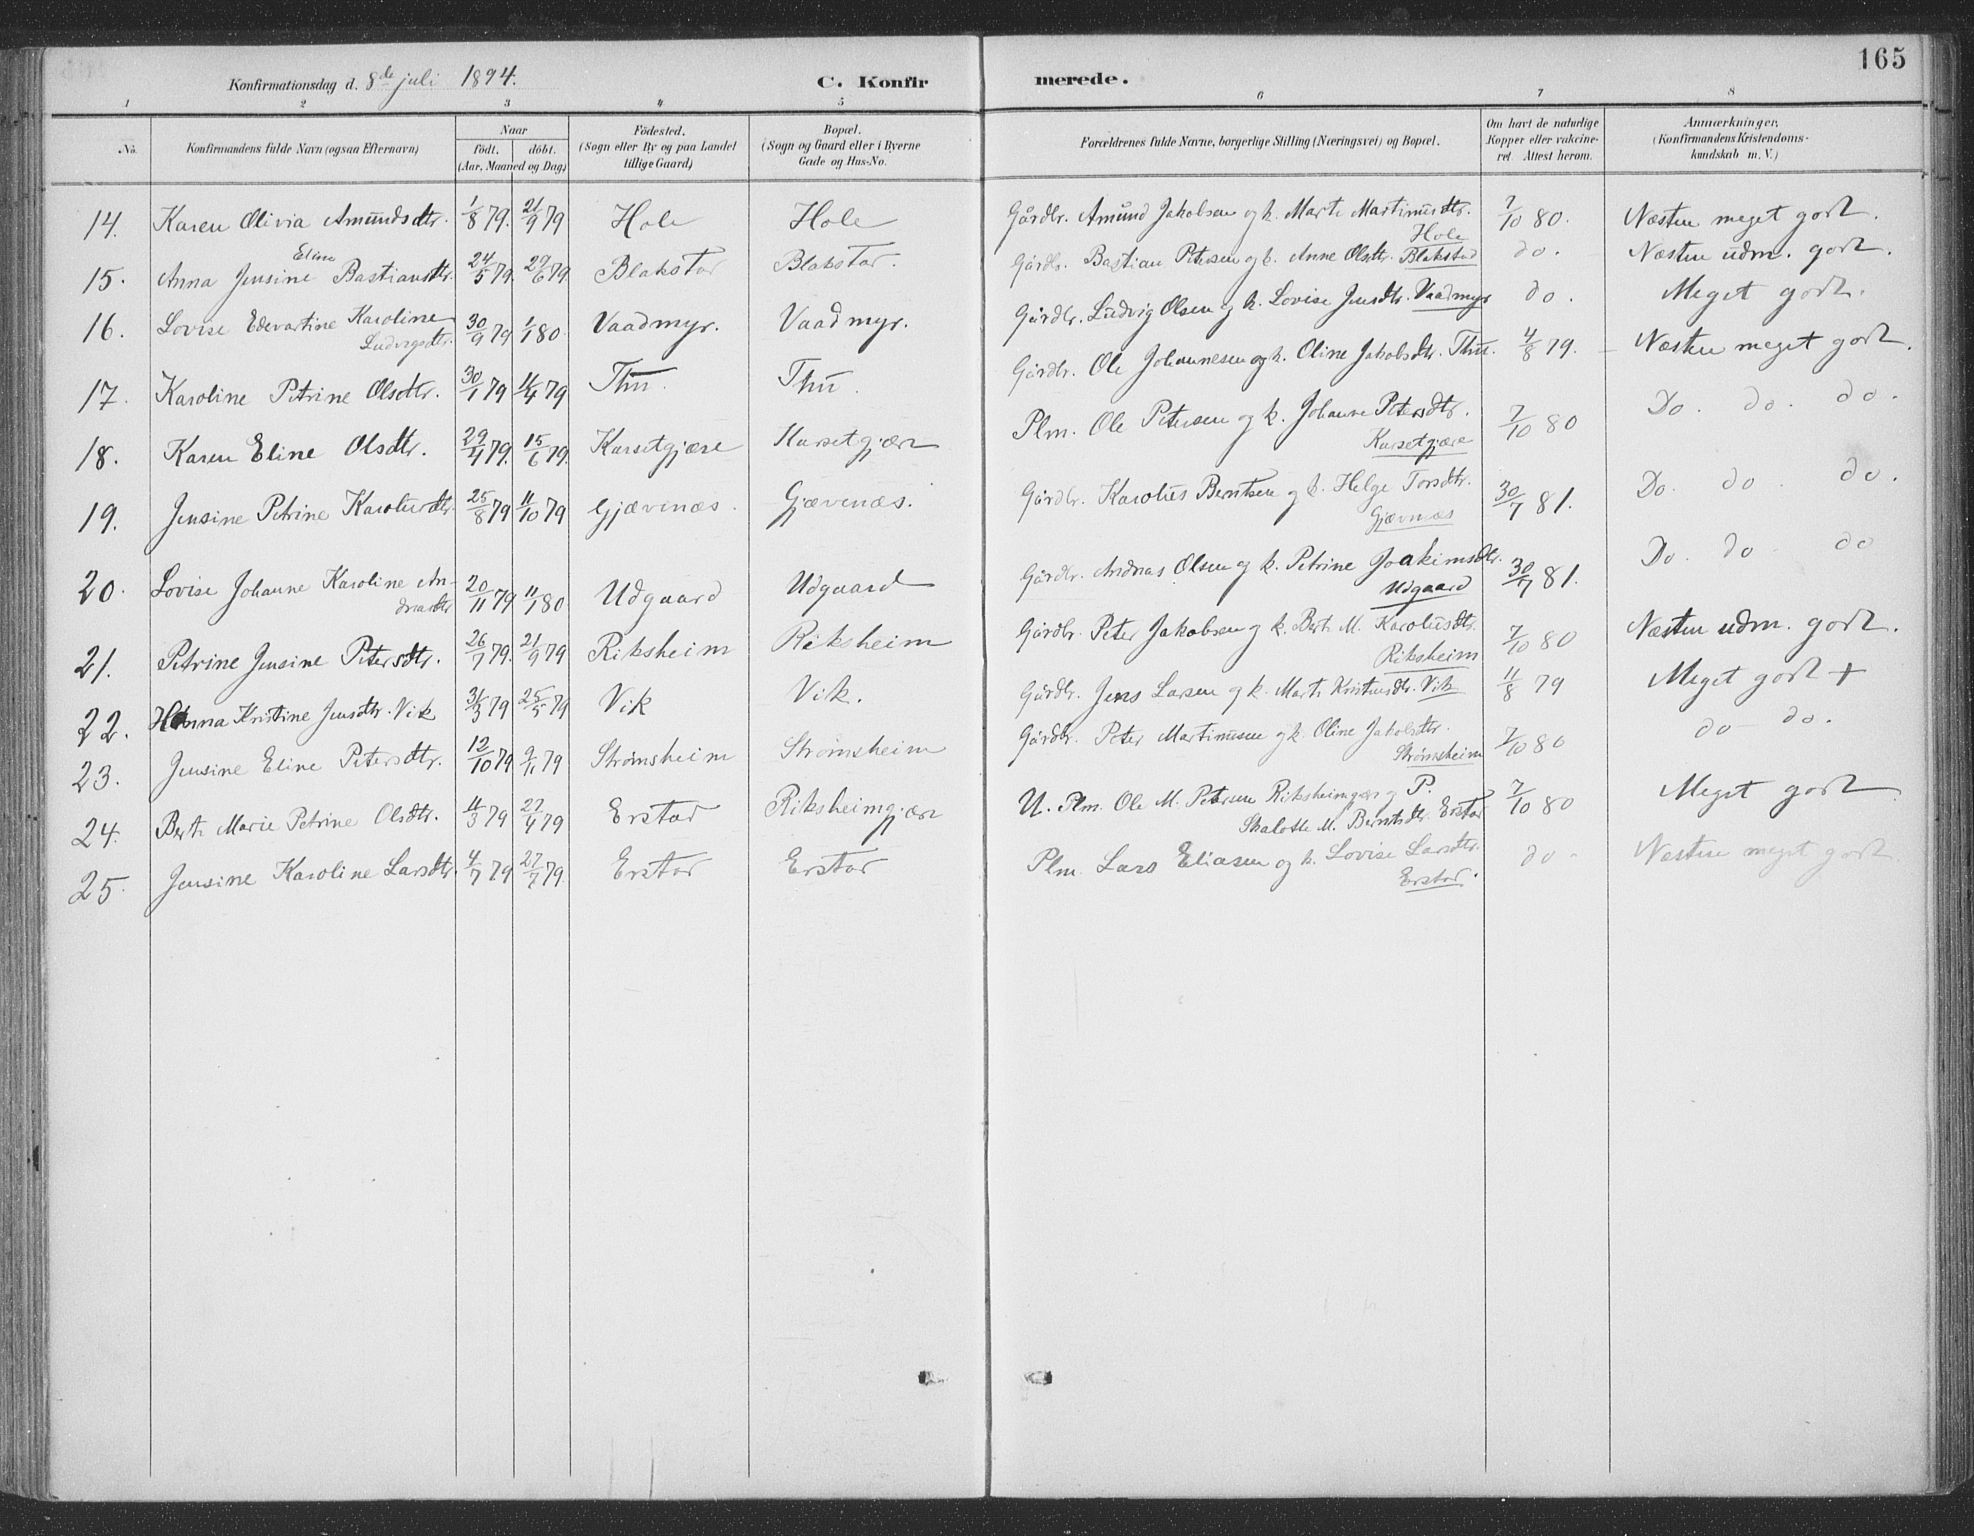 165
Konfirmationsdag d. 8de juli 1894. C. Konfirmerede.
1 2 3 4 5 6 7 8
No. Konfirmandens fulde Navn (ogsaa Efternavn) Naar født. døbt. (Aar, Maaned og Dag) Fødested. (Sogn eller By og paa Landet tillige Gaard) Bopæl. (Sogn og Gaard eller i Byerne Gade og Hus-No. Forældrenes fulde Navne, borgerlige Stilling (Næringsvei) og Bopæl. Om havt de naturlige Kopper eller vakcineret. Attest herom. Anmærkninger, (Konfirmandens Kristendomskundskab m. V.)
14. Karen Olivia Amundsdtr. 1/8 79. 21/9 79 Hole Hole Gårdbr. Amund Jakobsen og k. Marte Martinusdtr. Hole 7/10 80. Næsten meget godt.
15. Anna Jensine Eline Bastiansdtr. 24/5 79. 29/6 79 Blakstad Blakstad. Gårdbr. Bastian Petersen og k. Anne Olsdtr. Blakstad do. Næsten udm. godt.
16. Lovise Edevartine Karoline Ludvigsdtr. 30/9 79 1/1 80. Vaadmyr. Vaadmyr. Gårdbr. Ludvig Olsen og k. Lovise Jensdtr. Vaadmyr do. Meget godt.
17. Karoline Petrine Olsdtr. 30/1 79 14/4 79 Thu. Thu. Gårdbr. Ole Johannesen og k. Oline Jakobsdtr. Thu. 4/8 79. Næsten meget godt.
18. Karen Eline Olsdtr. 29/4 79. 15/6 79. Karsetgjære Karsetgjære Plm. Ole Petersen og k. Johanne Petersdtr. Karsetgjære 7/10 80 Do. do. do.
19. Jensine Petrine Karolusdtr. 25/8 79 11/10 79 Gjævenæs. Gjævenæs. Gårdbr. Karolus Berntsen og k. Helge Torsdtr. Gjævnæs 30/7 81. Do. do. do.
20. Lovise Johanne Karoline Andreasdtr 20/11 79 11/1 80 Udgaard Udgaard Gårdbr. Andreas Olsen og k. Petrine Joakimsdtr. Udgaard 30/7 81. Do. do do
21. Petrine Jensine Petersdtr. 26/7 79. 21/9 79 Riksheim Riksheim Gårdbr. Peter Jakobsen og k. Berte M. Karolusdtr. Riksheim 7/10 80 Næsten udm. godt.
22. Hanna Kristine Jensdtr. Vik 31/3 79 25/5 79 Vik Vik. Gårdbr. Jens Larsen og k. Marte Knutsdtr. Vik 11/8 79 Meget godt +
23. Jensine Eline Petersdtr. 12/10 79 9/11 79 Strømsheim Strømsheim Gårdbr. Peter Martinusen og k. Oline Jakobsdtr. Strømsheim 7/10 80 do do.
24. Berte Marie Petrine Olsdtr. 4/3 79 27/4 79 Erstad Riksheimgjære U. Plm. Ole M. Petersen Riksheimgjær og P. Skalotte M. Berntsdtr. Erstad 7/10 80 Meget godt
25. Jensine Karoline Larsdtr. 4/7 79 27/7 79. Erstad Erstad Plm. Lars Eliasen og k. Lovise Larsdtr. Erstad. do. Næsten meget godt